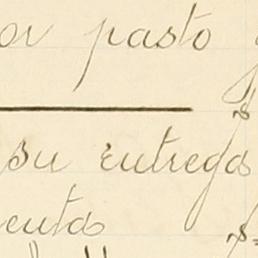 or pasto
su entrega
enta